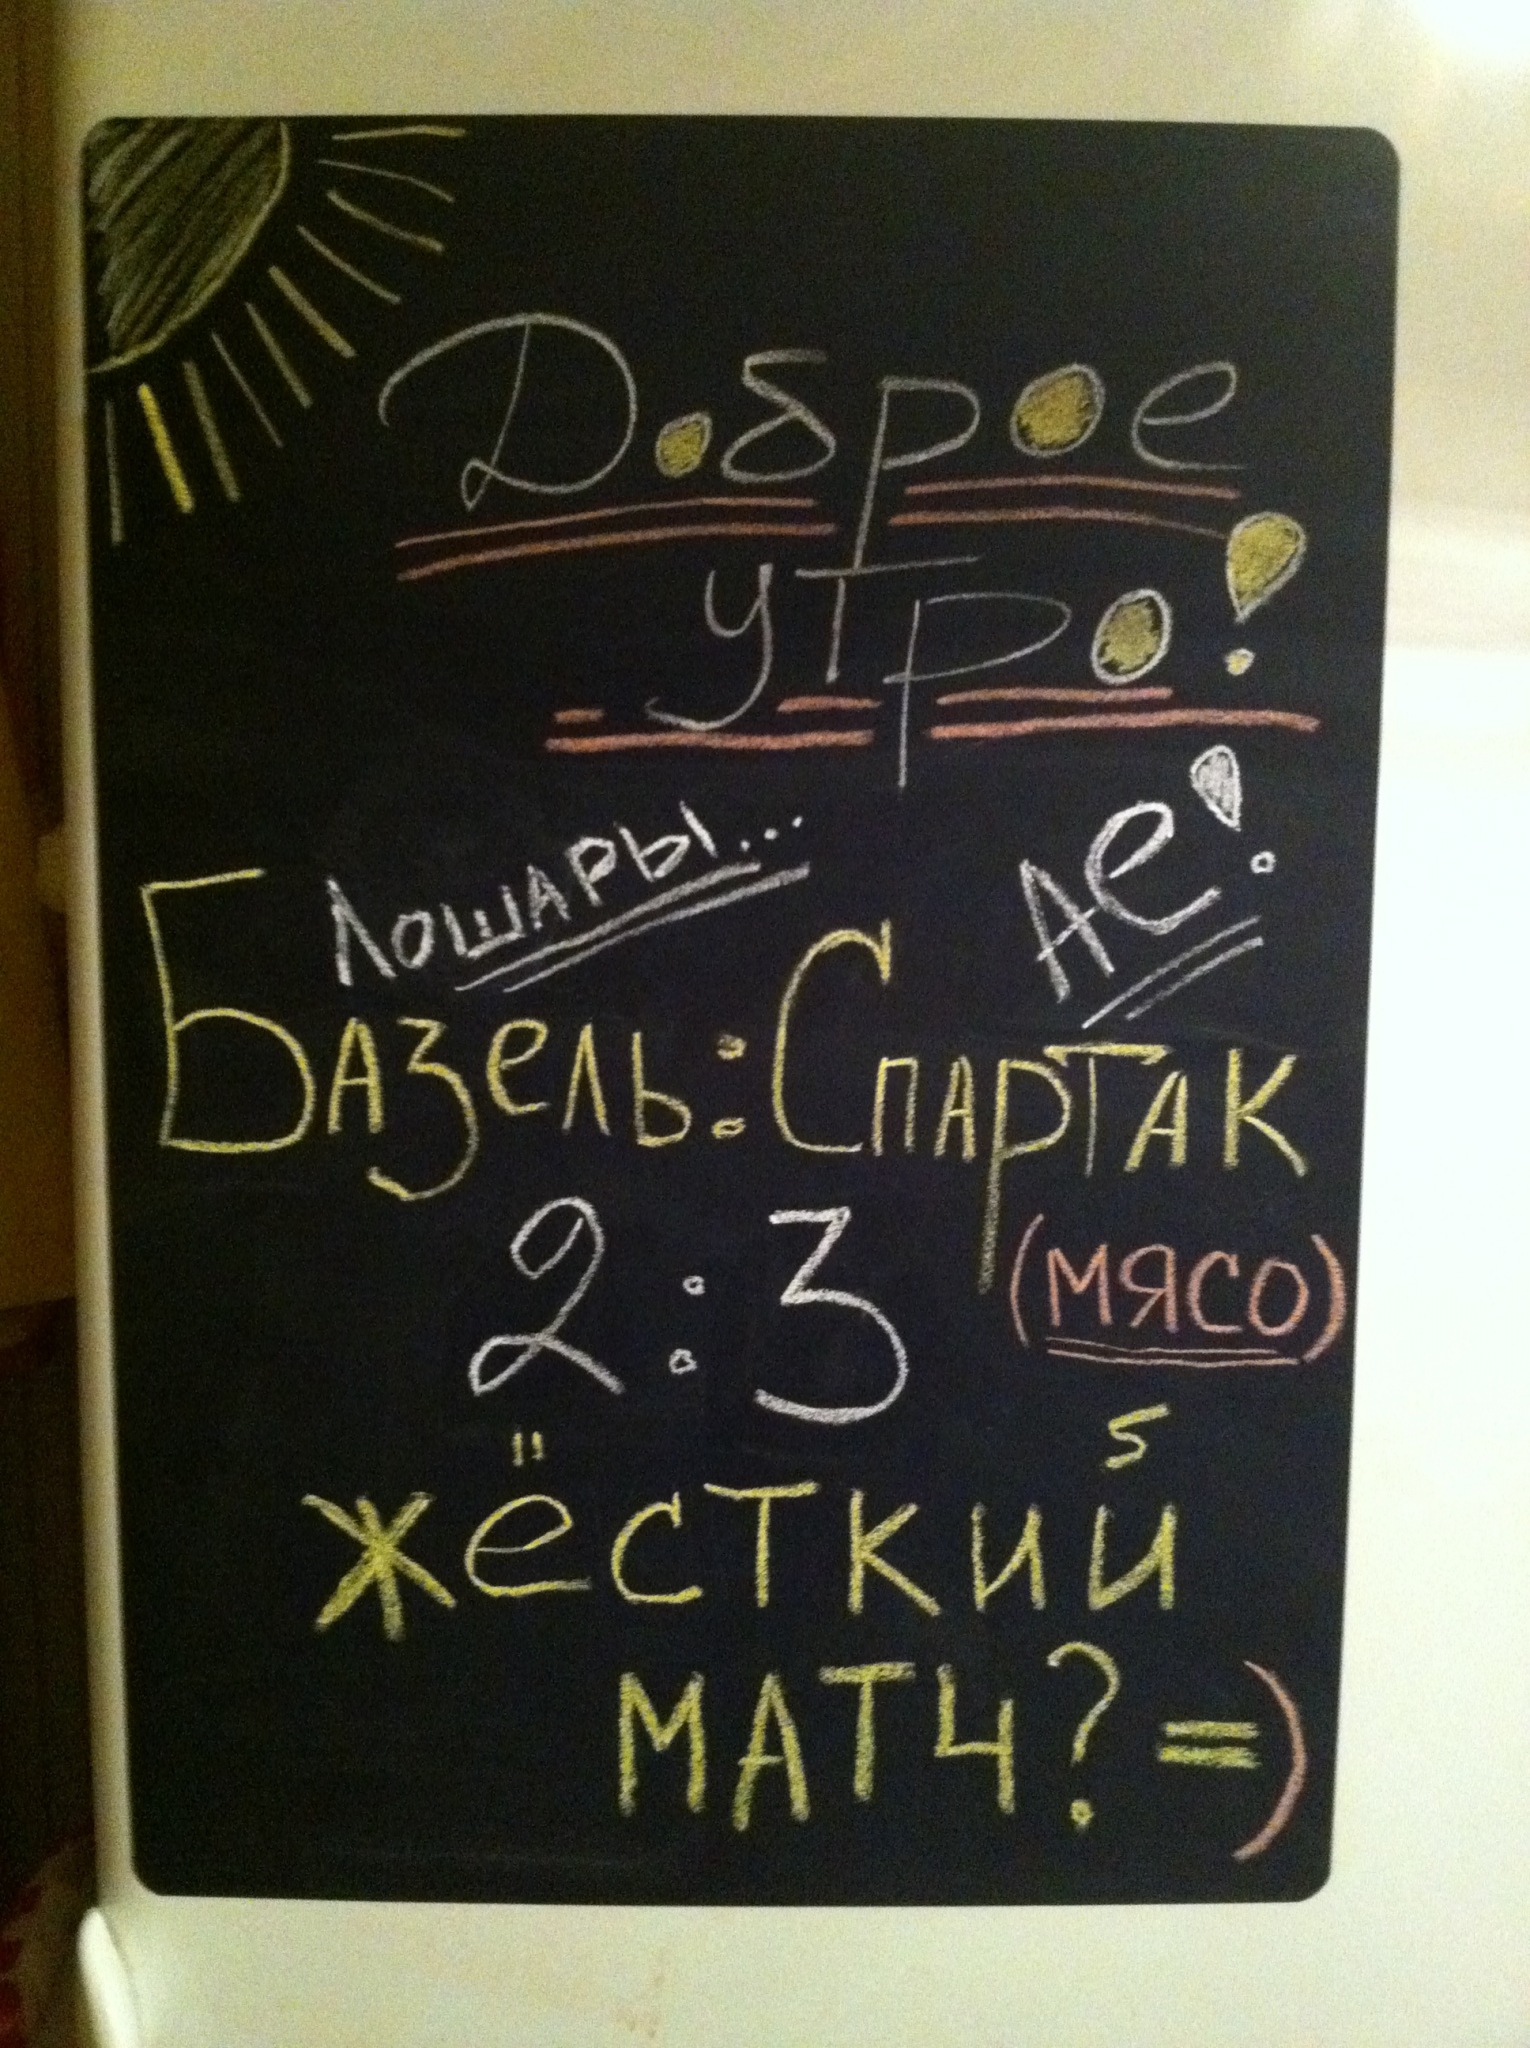 Доброе
утро!
Лошары... Ае!
Базель:Спартак
2:3 (мясо)
жёсткий
матч?=)